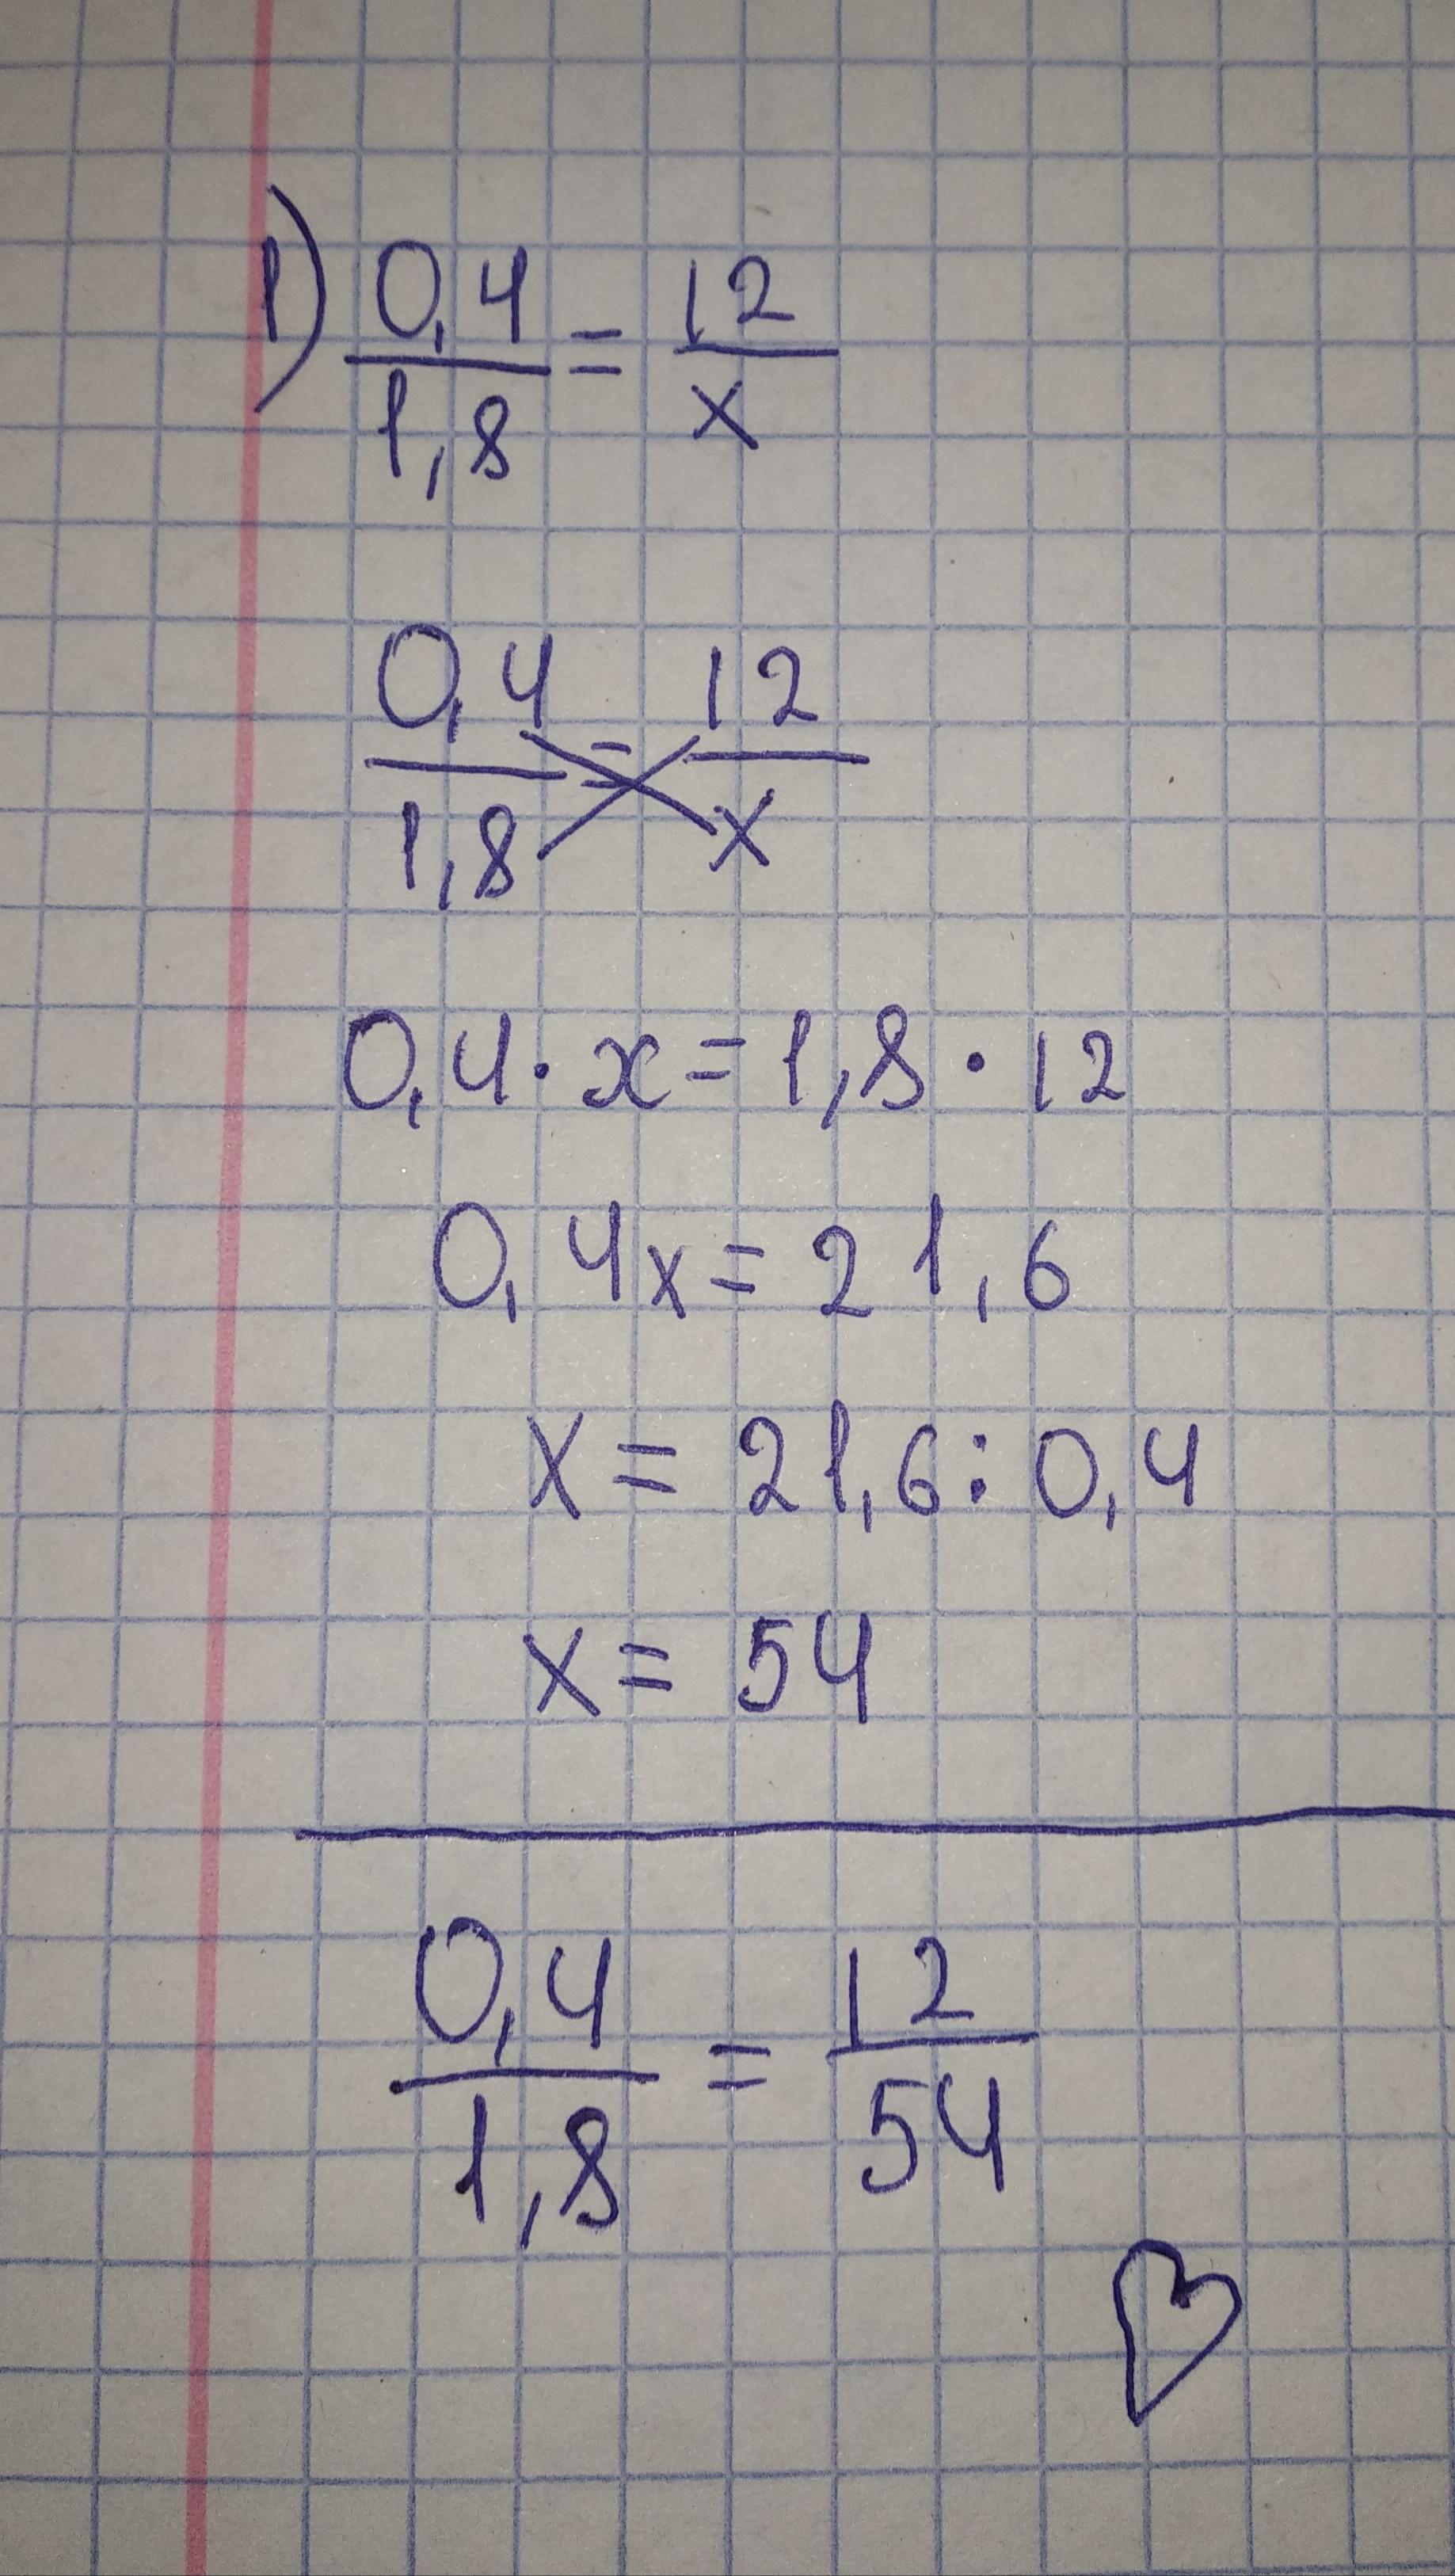 1) 0,4/1,8 = 12/x
0,4/1,8 = 12/x
0,4 · x = 1,8 · 12
0,4x = 21,6
x = 21,6 : 0,4
x = 54
0,4/1,8 = 12/54